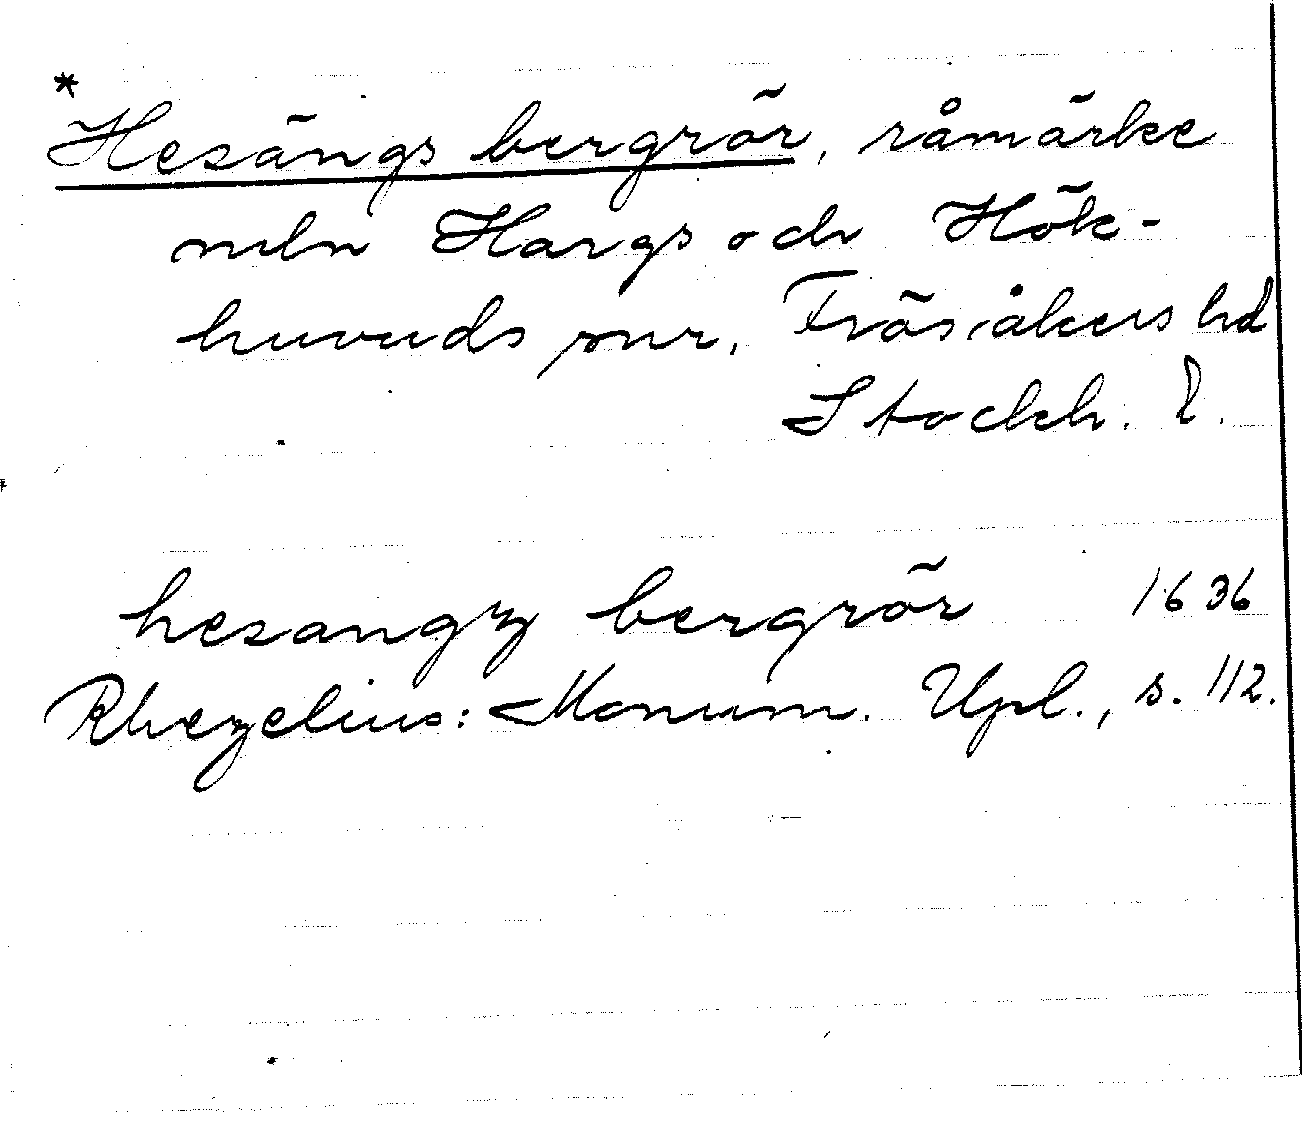 *
Hesängs bergrör, råmärke
mln Hargs och Hök-
huvuds snr, Frösåkers hd
Stockh. l.
hesangz bergrör 1636
Rhezelius: Monum. Upl., s. 112.